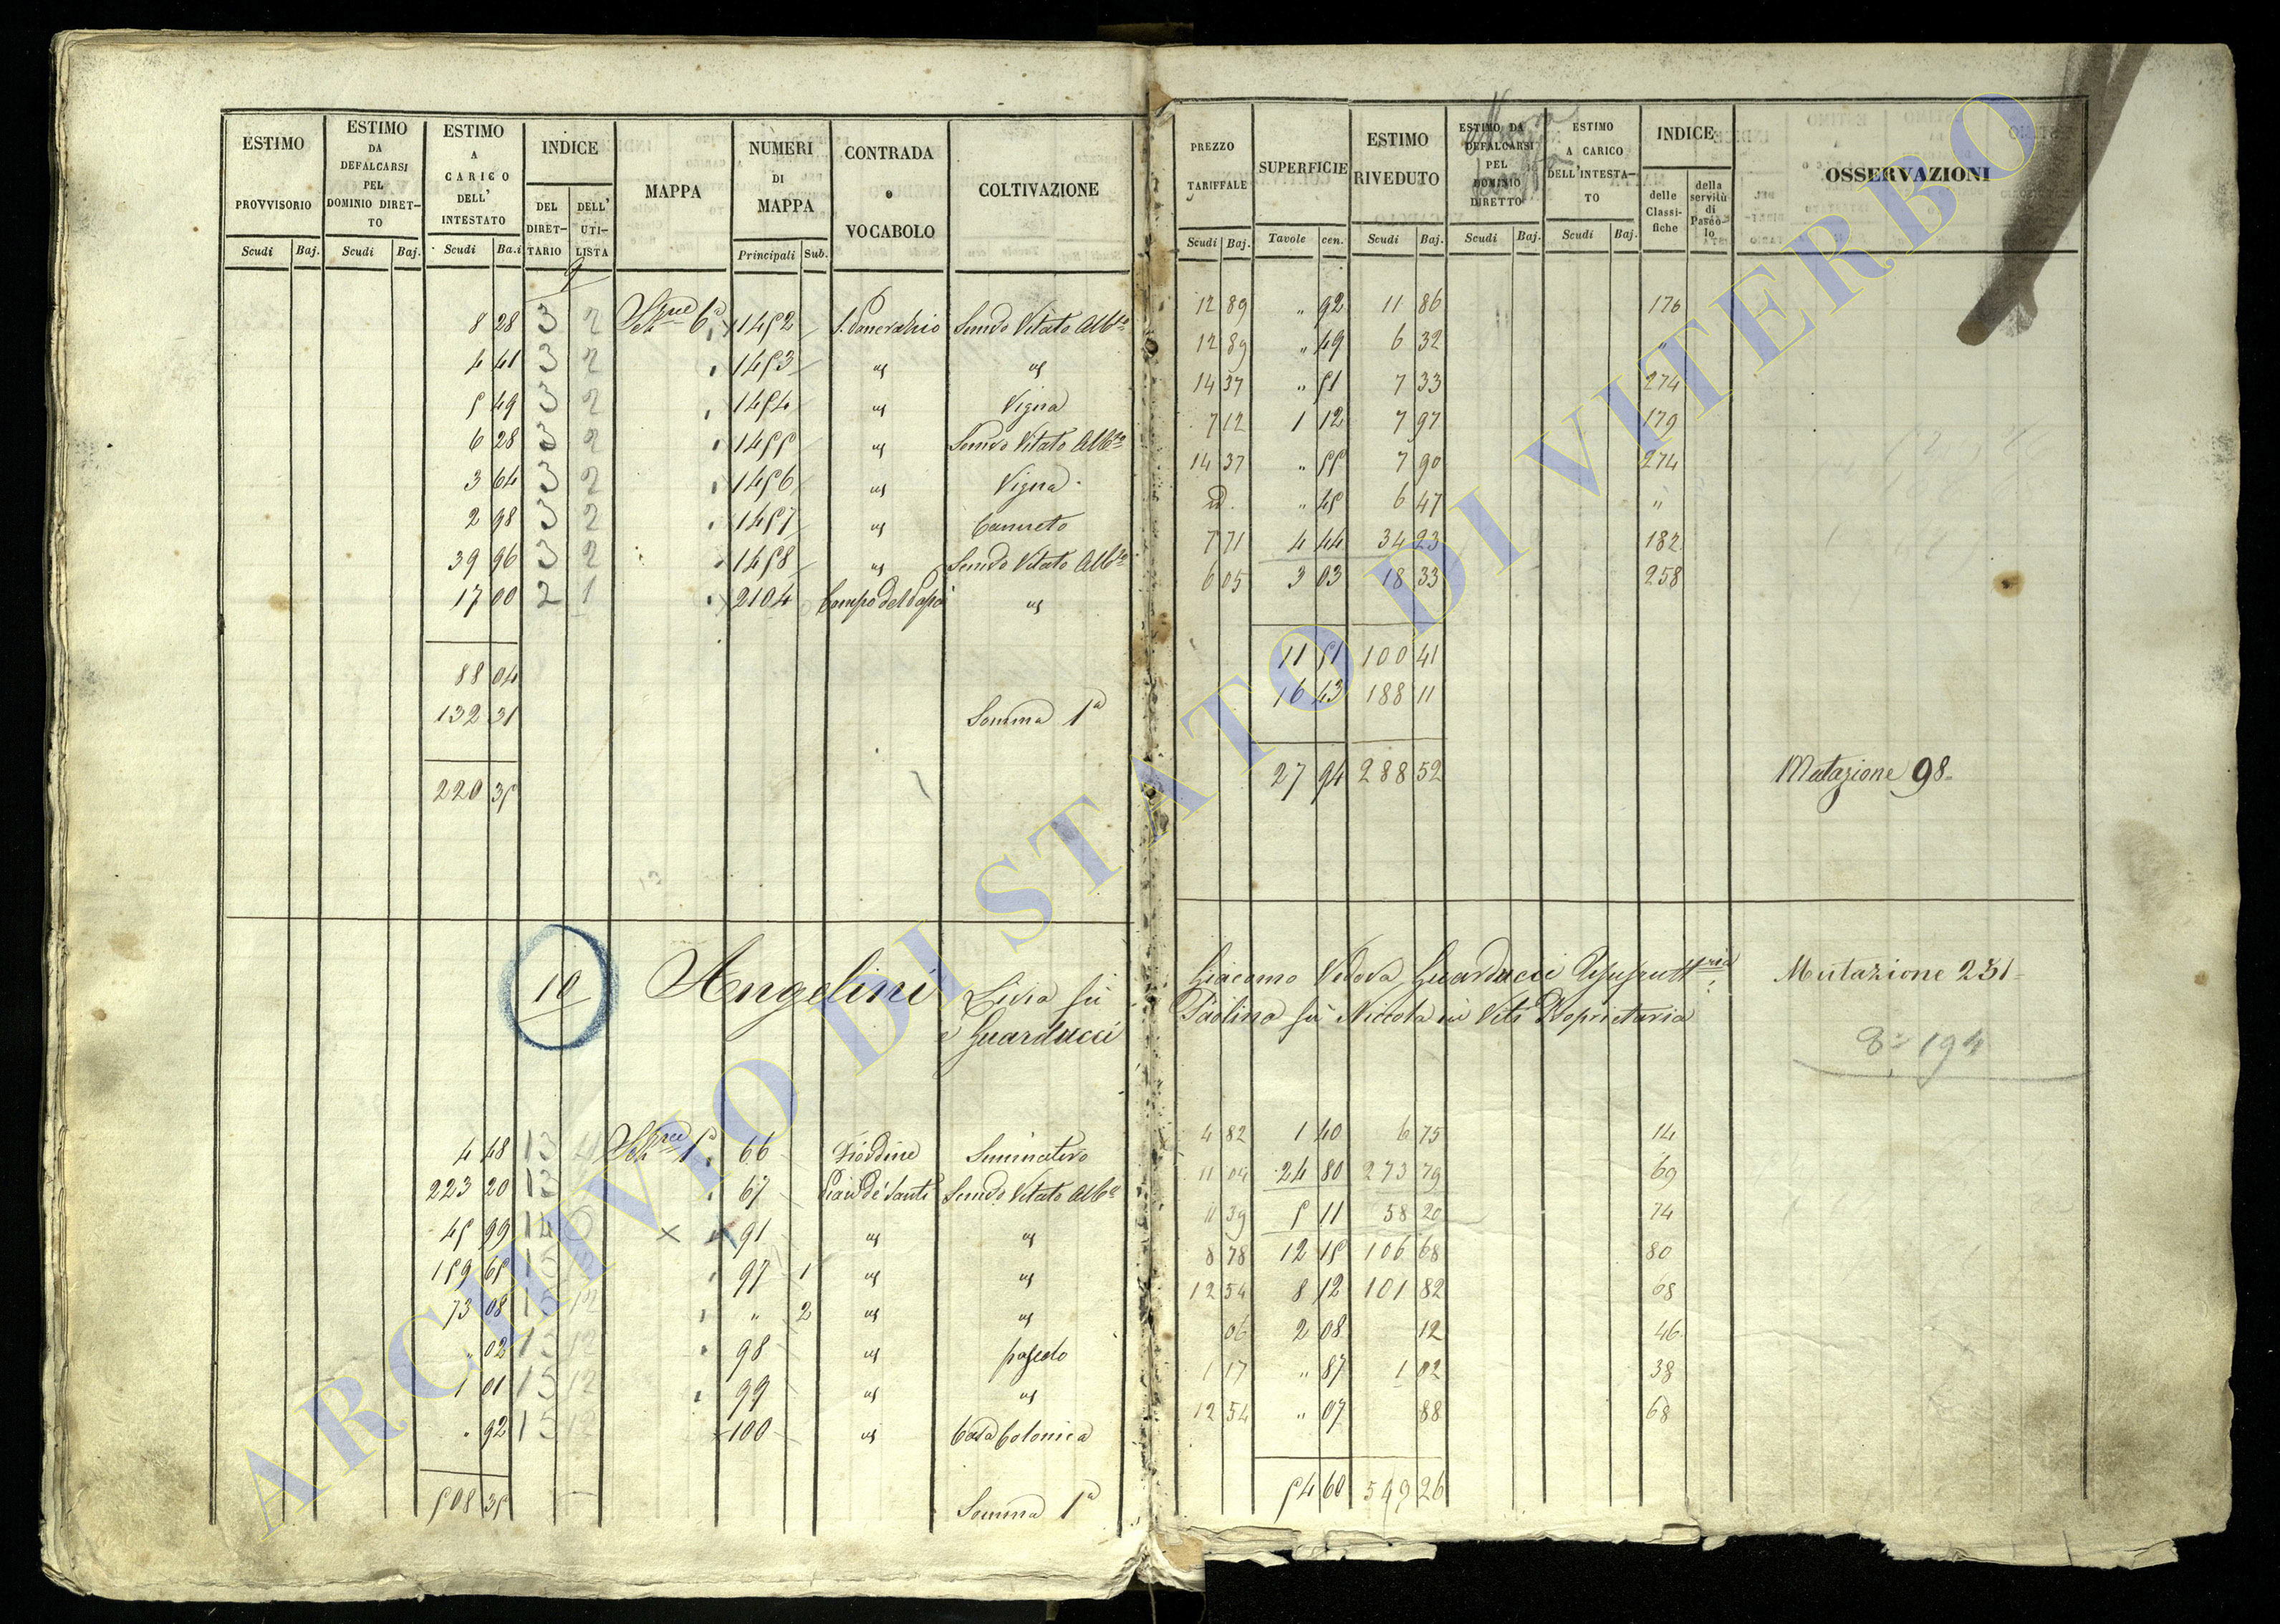 ESTIMO PROVVISORIO | ESTIMO DA DEFALCARSI PEL DOMINIO DIRETTO | ESTIMO A CARICO DELL' INTESTATO | INDICE | MAPPA | NUMERI DI MAPPA | CONTRADA o VOCABOLO | COLTIVAZIONE | PREZZO TARIFFALE | SUPERFICIE | ESTIMO RIVEDUTO | ESTIMO DA DEFALCARSI PEL DOMINIO DIRETTO | ESTIMO A CARICO DELL'INTESTATO | INDICE | OSSERVAZIONI
Scudi | Baj. | Scudi | Baj. | Scudi | Ba.i | DEL DIRETTARIO | DELL' UTILISTA | Principali | Sub. | Scudi | Baj. | Tavole | cen. | Scudi | Baj. | Scudi | Baj. | Scudi | Baj. | delle Classifiche | della servitù di Pascolo
9
8 28 3 2 6a 1452 S. Pancrazio Semvo Vitato Albto 12 89 " 92 11 86 176
4 41 3 2 1453 " " 12 89 " 49 6 32 "
5 49 3 2 1454 " Vigna 14 37 " 51 7 33 274
6 28 3 2 1455 " Semvo Vitato Albto 7 12 1 12 7 97 179
3 64 3 2 1456 " Vigna 14 37 " 55 7 90 274
2 98 3 2 1457 " Canneto id. " 45 6 47 "
39 96 3 2 1458 " Semvo Vitato Albto 7 71 4 44 34 23 182
17 00 2 1 2104 " 6 05 3 03 18 33 258
88 04 11 51 100 41
132 31 Somma 1a 16 43 188 11
220 35 27 94 288 52 Mutazione 98
10 Angelini Livia fù Giacomo Vedova Guarducci Usufruttria Mutazione 251
e Guarducci Paolina fù Niccola in Viti Proprietaria
194
4 48 13 66 Fiordine Seminativo 4 82 1 40 6 75 14
223 20 13 67 Pian de' Santi Semvo Vitato Albto 11 04 24 80 273 79 69
45 99 14 × 91 " " 11 39 5 11 58 20 74
159 65 15 97 1 " " 8 78 12 15 106 68 80
73 08 15 12 " 2 " " 12 54 8 12 101 82 68
" 02 13 12 98 " pascolo 06 2 08 12 46
1 01 15 12 99 " " 1 17 " 87 1 02 38
" 92 15 12 100 " Casa Colonica 12 54 " 07 88 68
508 35 Somma 1a 54 60 549 26
ARCHIVIO DI STATO DI VITERBO